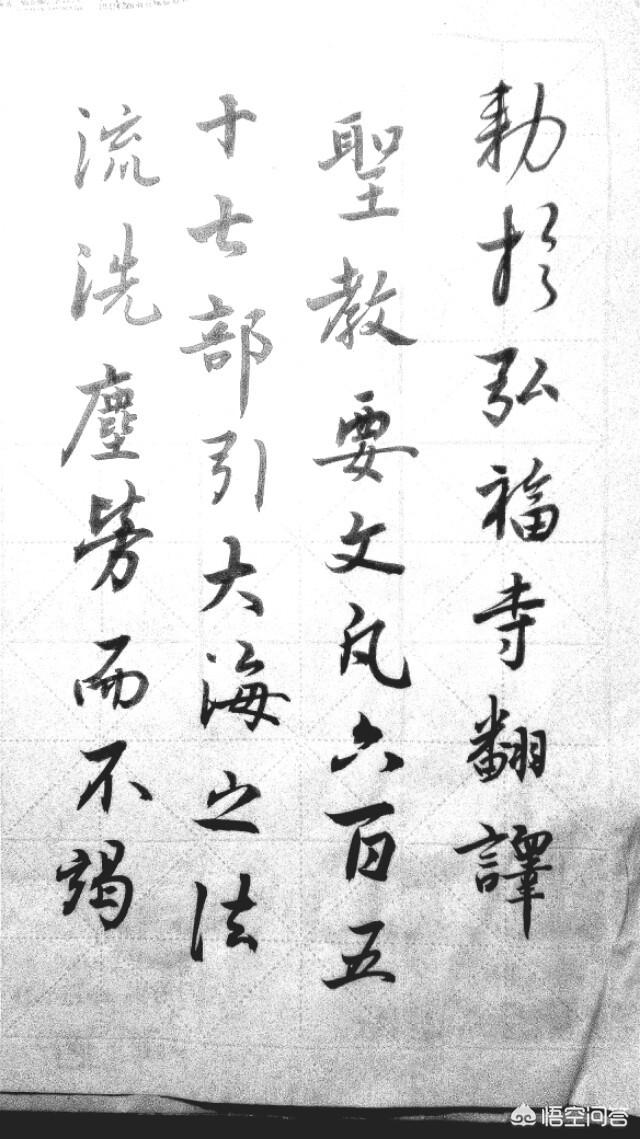 勅於弘福寺翻譯
聖教要文凡六百五
十七部引大海之法
流洗塵勞而不竭
悟空问答